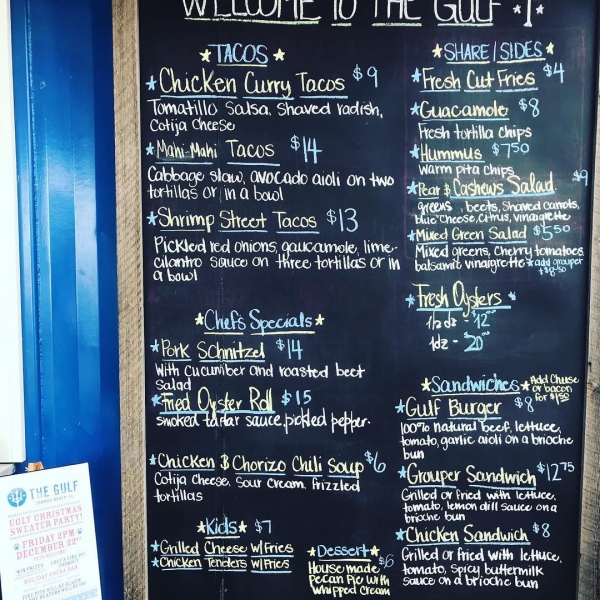 WELCOME TO THE GULF
TACOS
Chicken Curry Tacos $9
Tomatillo Salsa, Shaved radish,
Cotija Cheese
Mahi-Mahi Tacos $14
Cabbage slaw, avocado aioli on two
tortillas or in a bowl
Shrimp Street Tacos $13
Pickled red onions, gaucamole, lime-
cilantro sauce on three tortillas or in
a bowl
Chef's Specials
Pork Schnitzel $14
With Cucumber and roasted beet
Salad
Fried Oyster Roll $15
smoked tartar sauce, pickled pepper.
Chicken & Chorizo Chili Soup $6
Cotija Cheese, Sour Cream, frizzled
tortillas
Kids $7
Grilled Cheese w/Fries
Chicken Tenders w/Fries
Dessert $6
House made
pecan Pie with
whipped Cream
SHARE/SIDES
Fresh Cut Fries $4
Guacamole $8
Fresh tortilla chips
Hummus $7.50
warm pita chips
Pear & Cashews Salad $9
greens, beets, Shaved Carrots,
blue Cheese, Citrus, vinaigrette
Mixed Green Salad $5.50
Mixed greens, Cherry tomatoes
balsamic vinaigrette *add grouper
+$8.50
Fresh Oysters
1/2 dz - $12
1dz - 20
Sandwiches
Add Cheese
or bacon
for $1.50
Gulf Burger $8
100% natural beef, lettuce,
tomato, garlic aioli on a brioche
bun
Grouper Sandwich $12.75
Grilled or fried with lettuce,
tomato, lemon dill sauce on a
brioche bun
Chicken Sandwich $8
Grilled or fried with lettuce,
tomato, spicy buttermilk
sauce on a brioche bun
THE GULF
ORANGE BEACH, AL
UGLY CHRISTMAS
SWEATER PARTY!
FRIDAY 2PM
DECEMBER 22ND